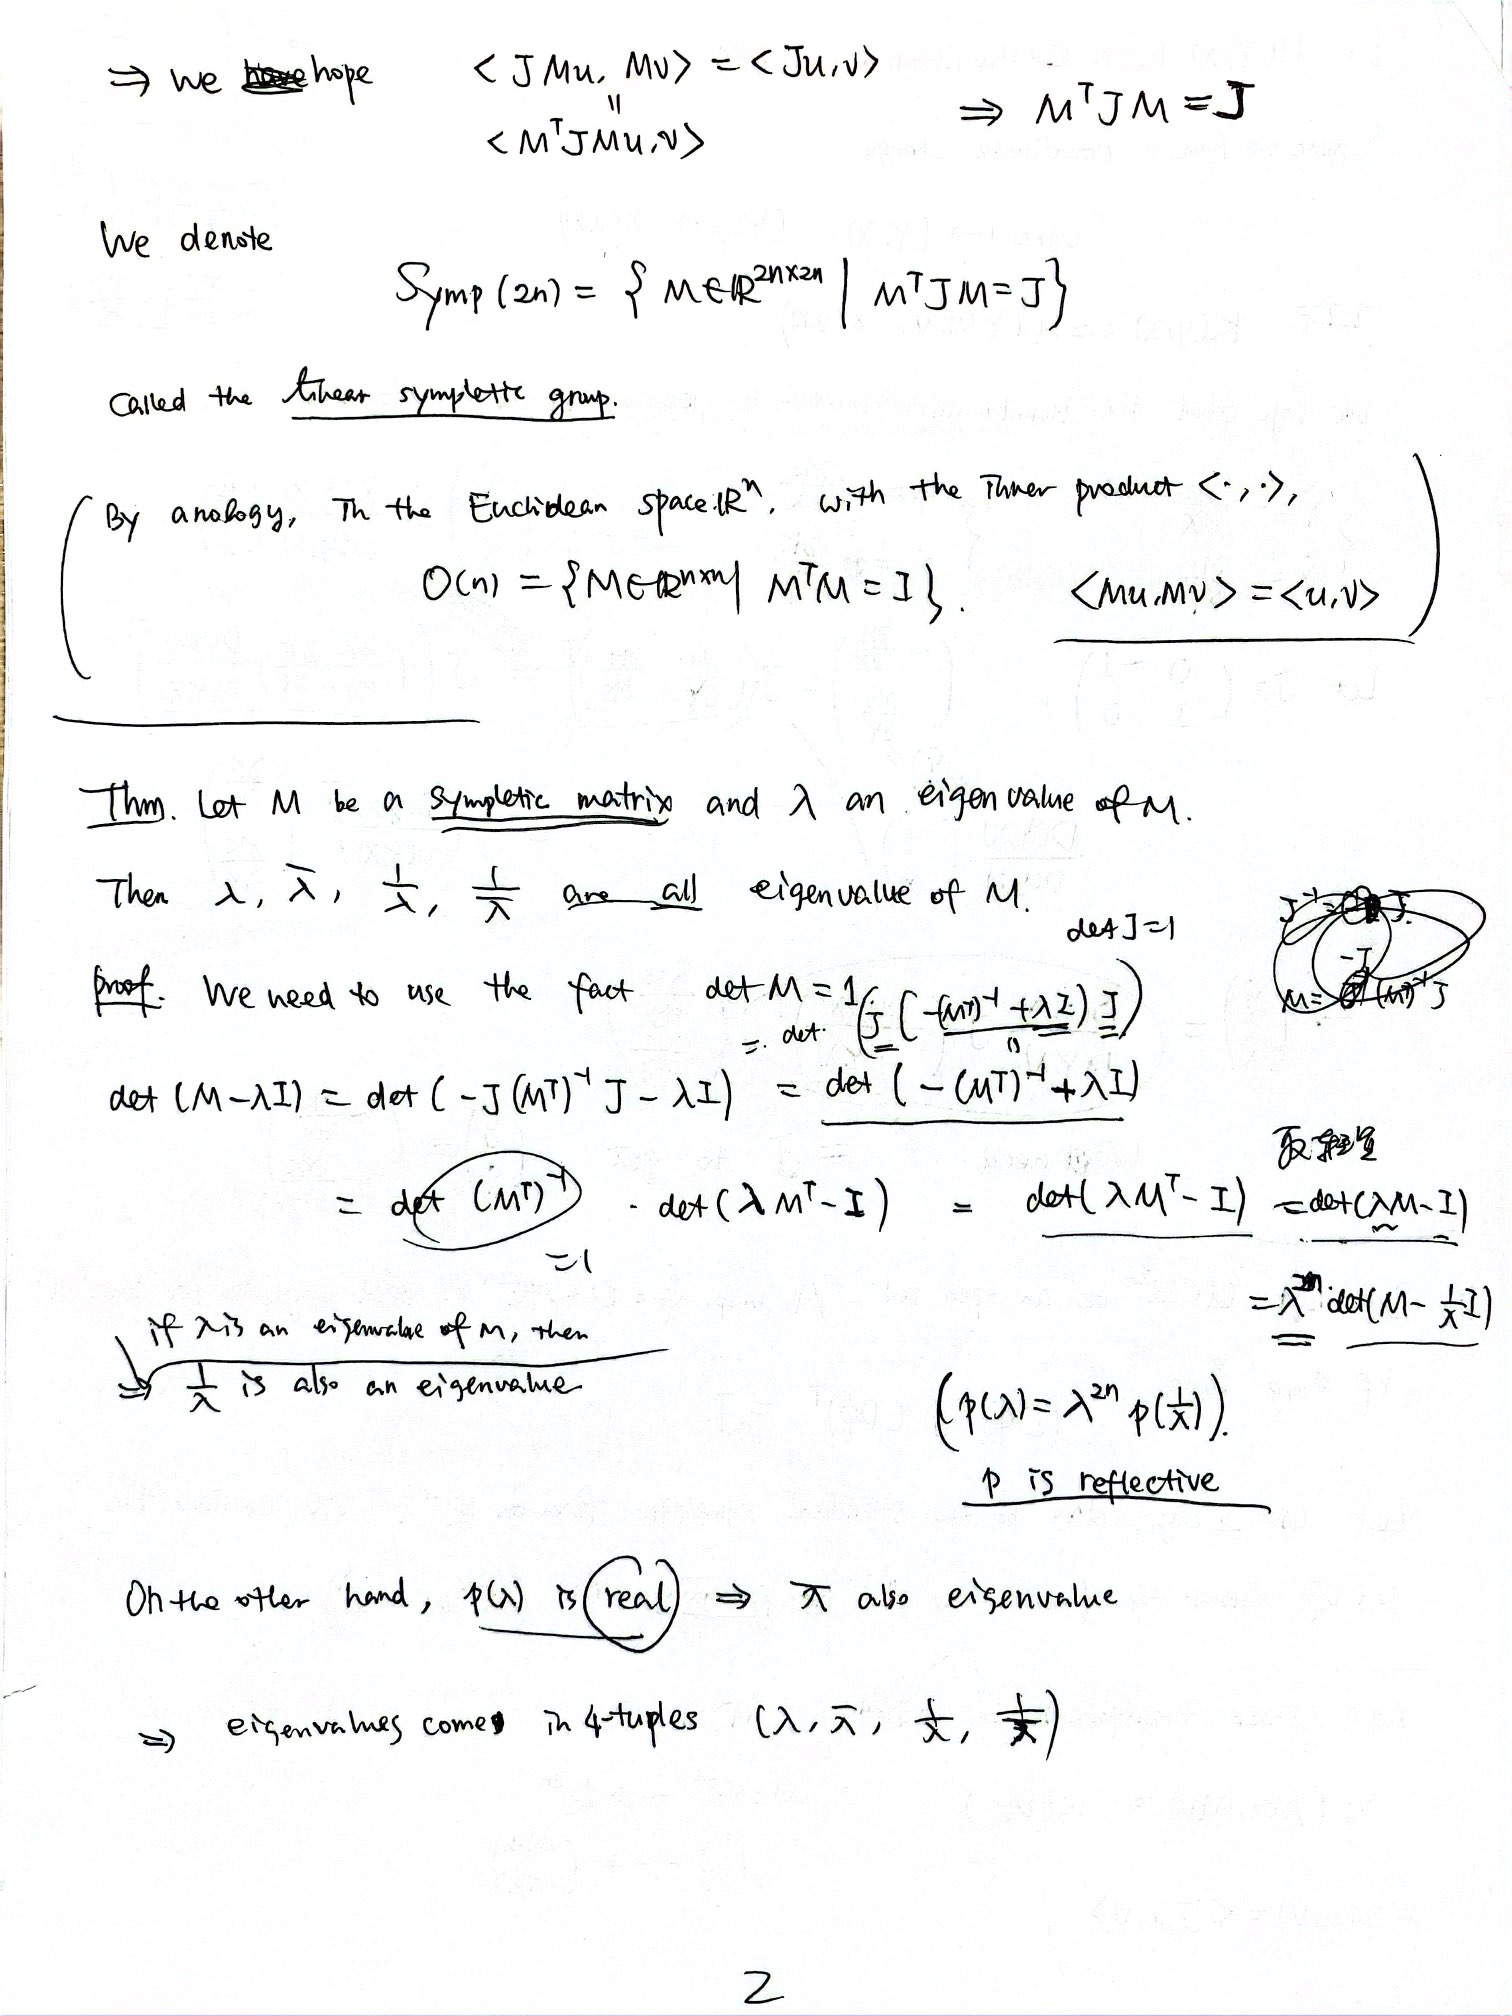 ⇒ we hope <JMu, Mv> = <Ju,v> ⇒ MᵀJM = J
=
<MᵀJMu,v>
We denote
Symp(2n) = { M∈ℝ²ⁿˣ²ⁿ | MᵀJM = J }
called the linear sympletic group.
(By analogy, in the Euclidean space ℝⁿ, with the inner product <·,·>,
O(n) = {M∈ℝⁿˣⁿ | MᵀM = I}. <Mu,Mv> = <u,v>)
Thm. Let M be a sympletic matrix and λ an eigenvalue of M.
Then λ, λ̄, 1/λ, 1/λ̄ are all eigenvalue of M.
det J = 1
proof. We need to use the fact det M = 1.
= det (J(-(Mᵀ)⁻¹ + λI) J)
det(M-λI) = det(-J(Mᵀ)⁻¹J - λI) = det(-(Mᵀ)⁻¹ + λI)
= det (Mᵀ)⁻¹ · det(λMᵀ - I) = det(λMᵀ - I) = det(λM - I)
=1
= λ²ⁿ det(M - 1/λ I)
if λ is an eigenvalue of M, then
⇒ 1/λ is also an eigenvalue
(p(λ) = λ²ⁿ p(1/λ)).
p is reflective
On the other hand, p(λ) is real ⇒ λ̄ also eigenvalue
⇒ eigenvalues comes in 4-tuples (λ, λ̄, 1/λ, 1/λ̄)
2